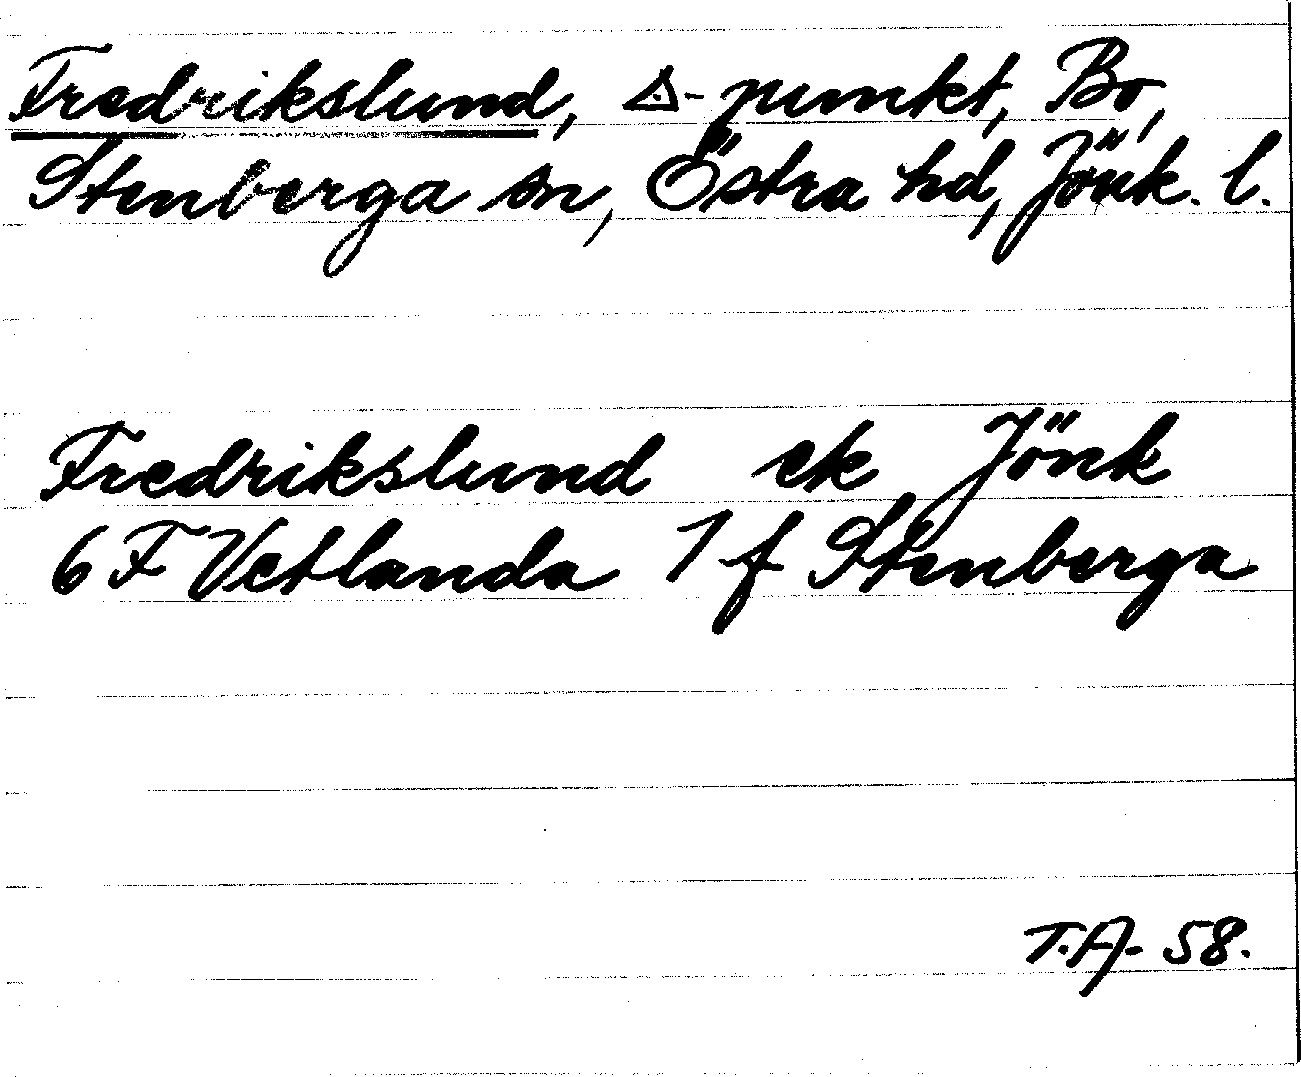 Fredrikslund, ◬-punkt, Bo,
Stenberga sn, Östra hd, Jönk. l.
Fredrikslund ek Jönk
6 F Vetlanda 7 f Stenberga
T.A. 58.